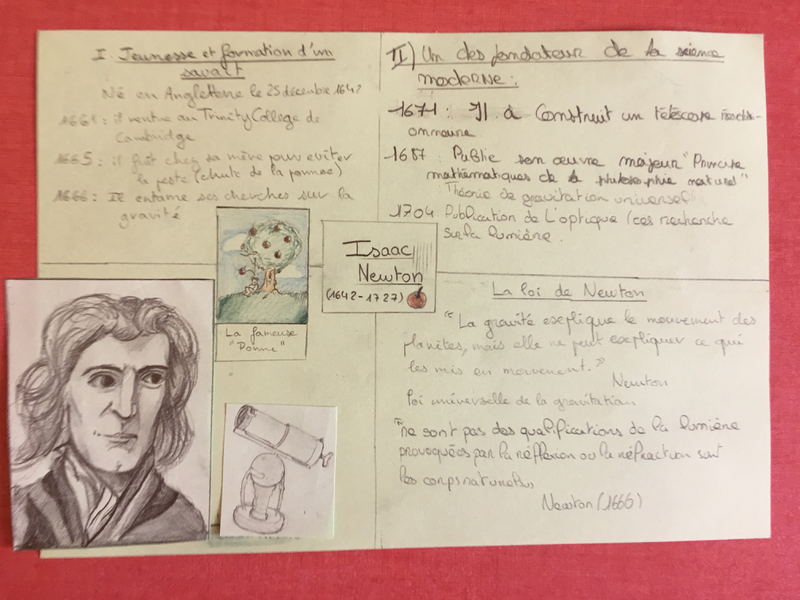 I. Jeunesse et formation d'un
savant
Né en Angleterre le 25 décembre 1642
1661 : il rentre au Trinity College de
Cambridge
1665 : il fuit chez sa mère pour eviter
la peste (chute de la pomme)
1666 : Il entame ses cherches sur la
gravité
II) Un des fondateur de la science
moderne :
1671 : Il à Construit un téléscope
1687 : Publie son œuvre majeur "Principe
mathématiques de la philosophie naturel"
Théorie de gravitation universel
1704 : Publication de L'optique (ces recherche
sur la lumière.
Isaac
Newton
(1642-1727)
La fameuse
"Pomme"
La loi de Newton
"La gravité explique le mouvement des
planètes, mais elle ne peut expliquer ce qui
les mis en mouvement."
Newton
Loi universelle de la gravitation
"ne sont pas des qualifications de la lumière
provoquées par la réflexion ou la réfraction sur
les corps naturels
Newton (1666)